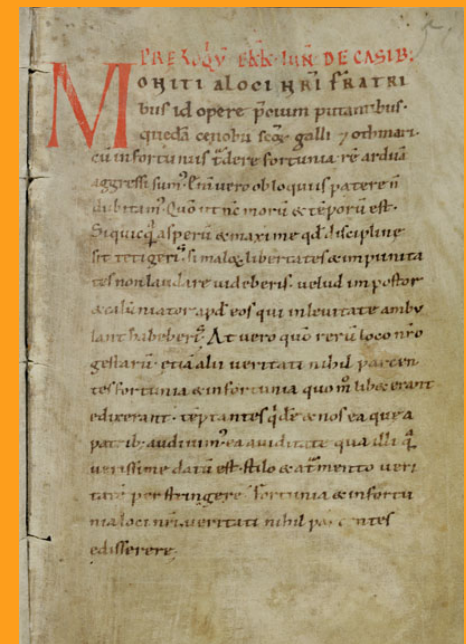 PRELOQVV EKK · IUN DE CASIB;
MONITI A LOCI NRI FRATRI
bus id opere p̄cium putantibus ·
quedā cenobii sc̄oꝝ galli ⁊ othmari ·
cū infortuniis t̄dere fortunia · rē arduā
aggressi sumꝰ · l̄ui vero obloquiis patere n̄
dubitamꝰ · Quō ut nc̄ morū & tēporū est ·
Siquicq̄ asperū & maxime qd̄ discipline
sit tetigerimꝰ si malos libertates & impunita
tes non laudare videberis · velud impostor
& calūniator apd̄ eos qui in levitate ambu
lant habeberis · At vero quō rerū loco nr̄o
gestarū · etiā alii veritati nihil parcen
tes fortunia & infortunia quom̄ libꝫ erant
edixerant · tēptantes q̄dē & nos ea que a
patrib; audivimꝰ ea aviditate qua illi q̄
verissime datū est · stilo & at̄mento veri
tatē perstringere · fortunia & infortu
nia loci nr̄i veritati nihil parcentes
edisserere ·